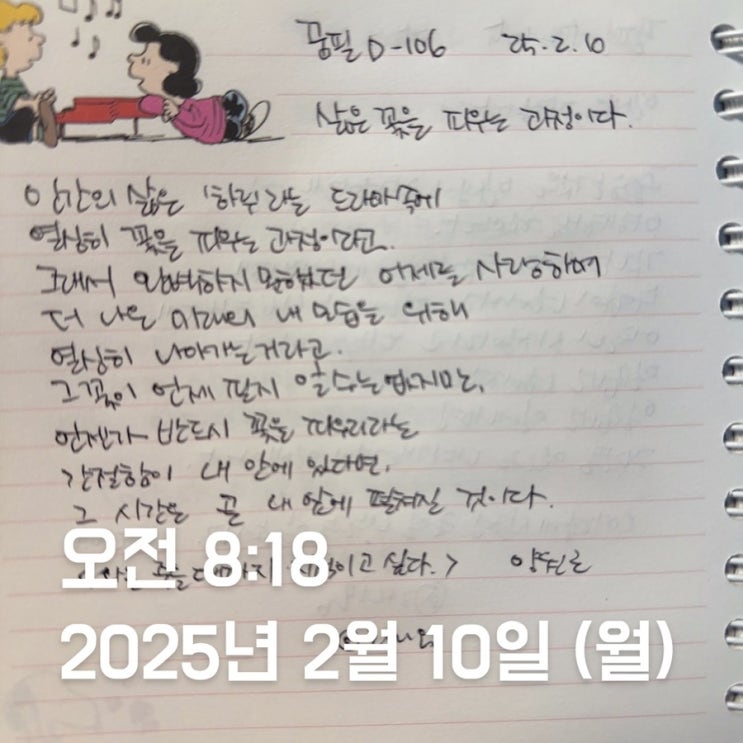 꿈필 D-106 25.2.10
삶은 꽃을 피우는 과정이다.
인간의 삶은 '하루'라는 드라마 속에
열심히 꽃을 피우는 과정이라고.
그래서 완벽하지 못했던 어제를 사랑하며
더 나은 미래의 내 모습을 위해
열심히 나아가는거라고.
그 꽃이 언제 필지 알 수는 없지만,
언젠가 반드시 꽃을 피우리라는
간절함이 내 안에 있다면,
그 시간은 곧 내 앞에 펼쳐질 것이다.
이고 싶다.> 양원근
오전 8:18
2025년 2월 10일 (월)